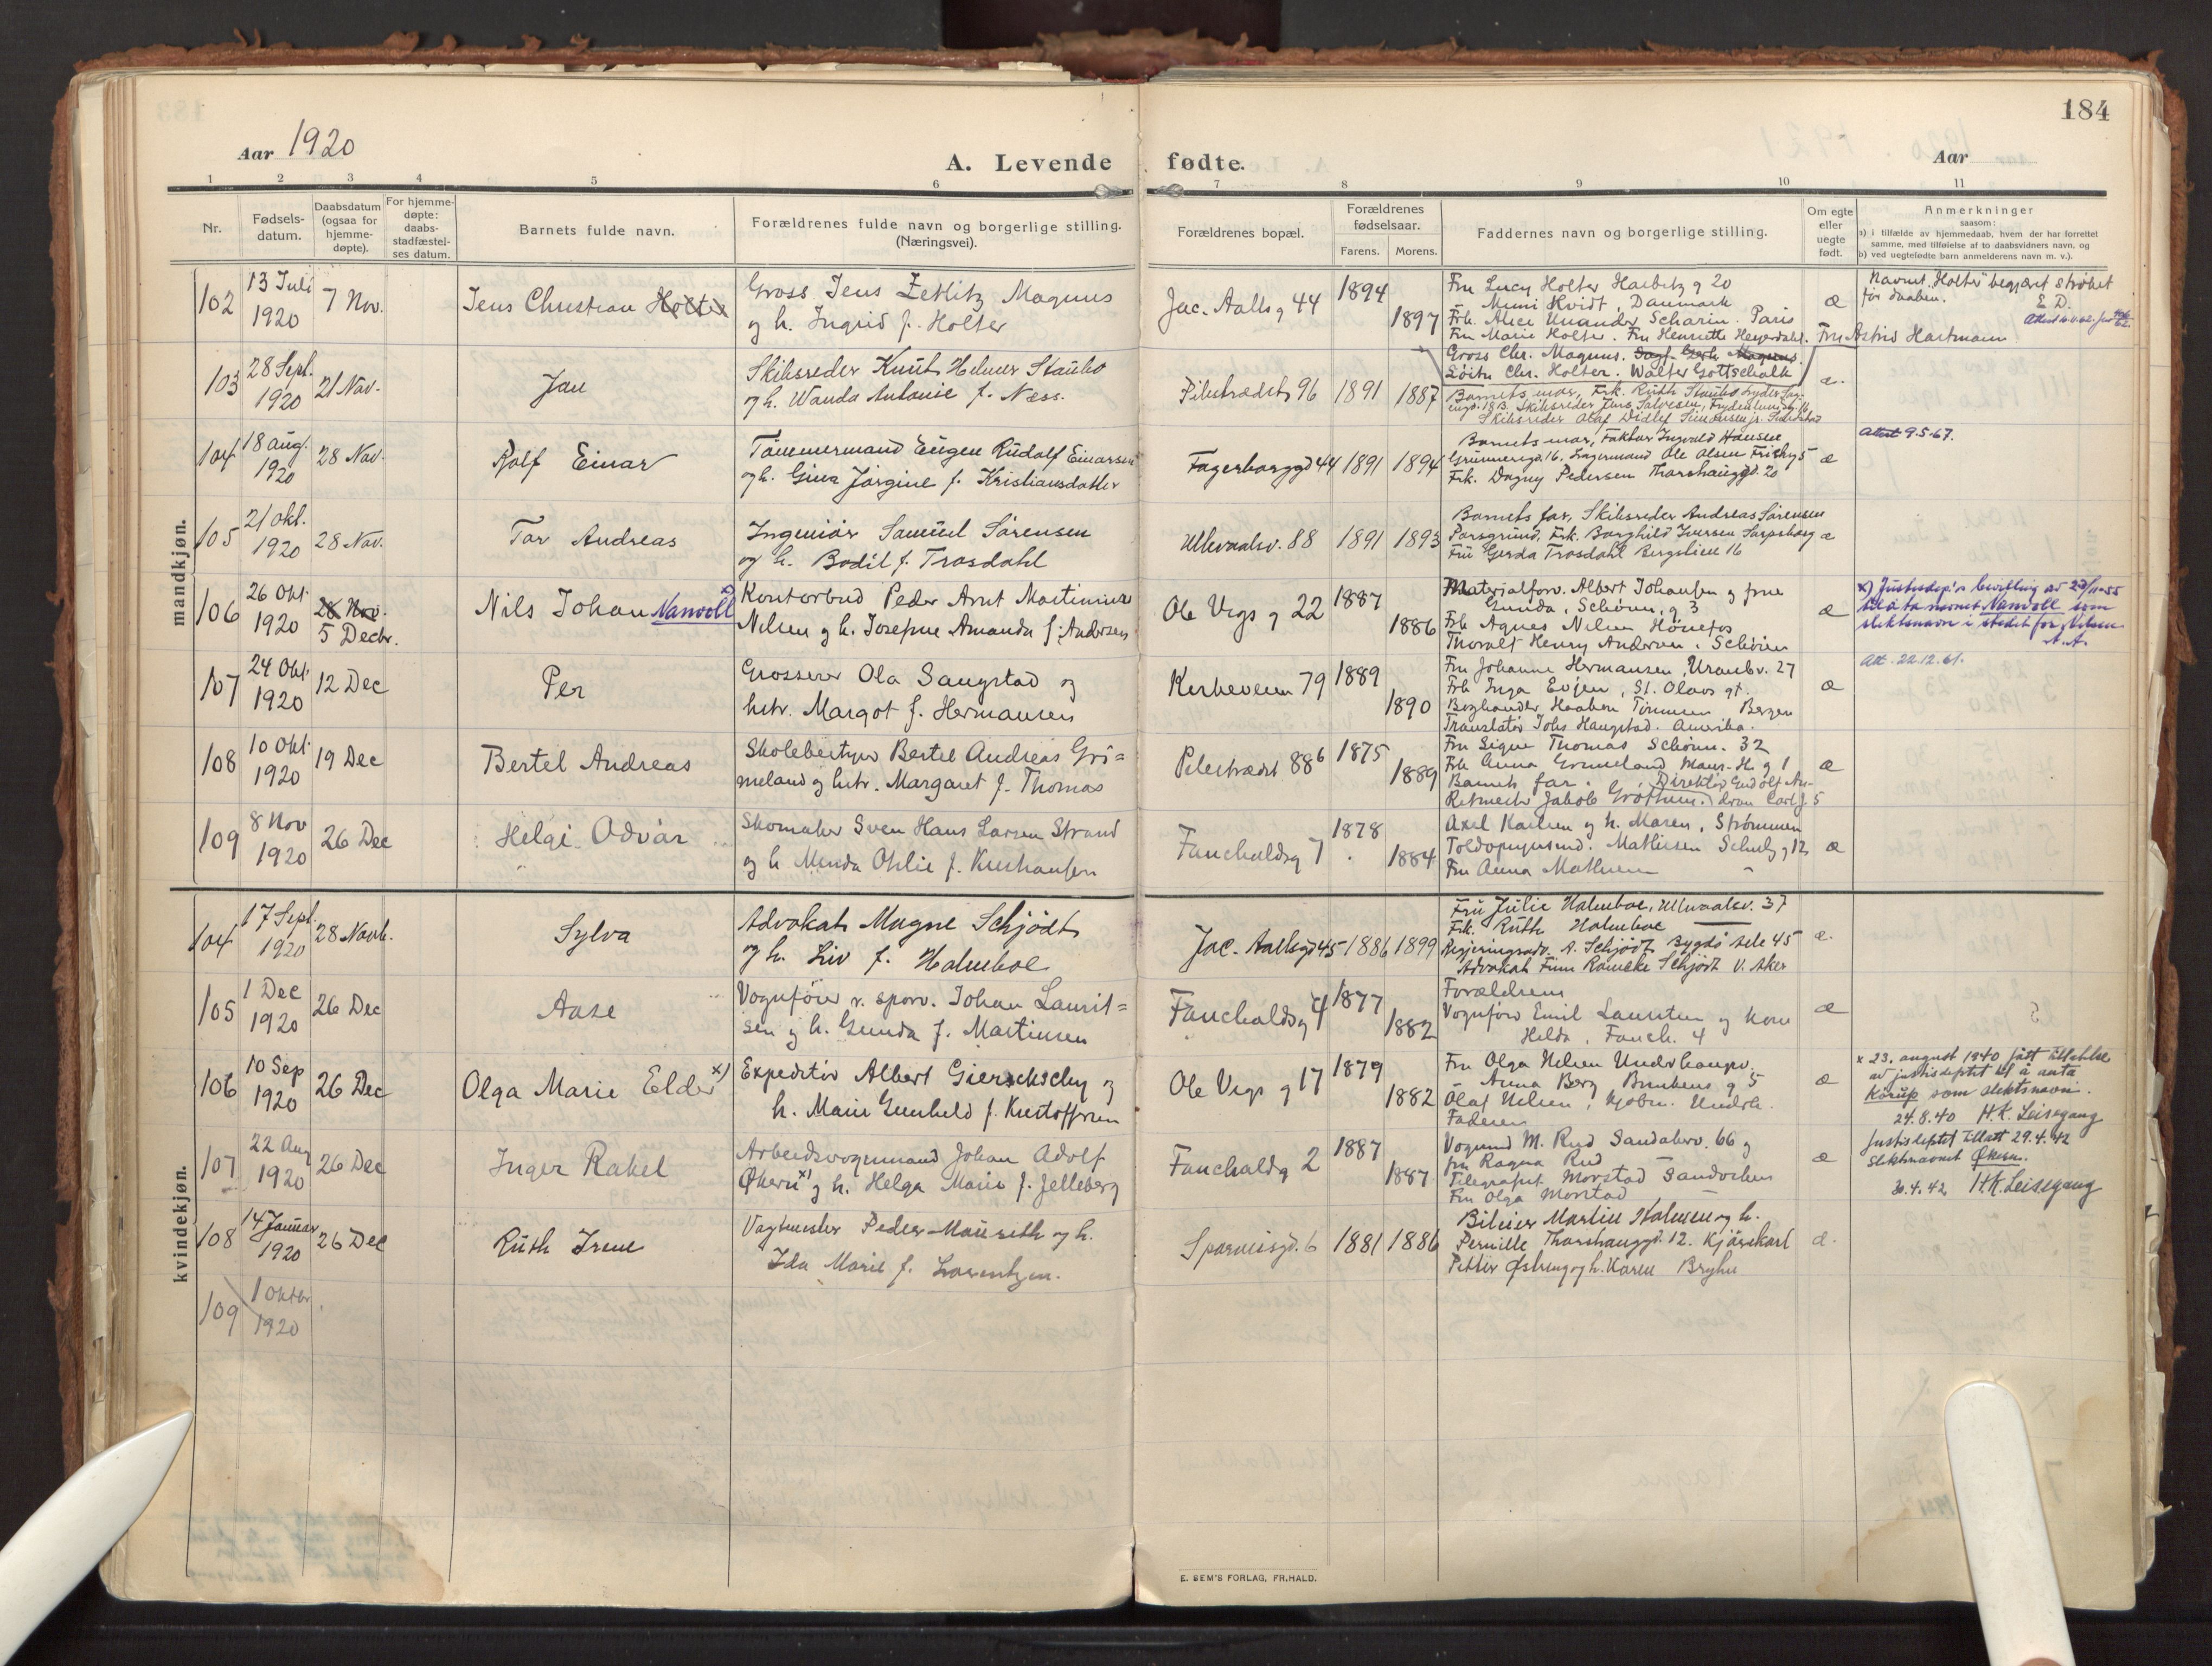 184
Aar 1920
A. Levende fødte.
Aar
1 2 3 4 5 6 7 8 9 10 11
Nr.
Fødsels-
datum.
Daabsdatum
(ogsaa for
hjemme-
døpte).
For hjemme-
døpte:
daabs-
stadfæstel-
ses datum.
Barnets fulde navn.
Forældrenes fulde navn og borgerlige stilling.
(Næringsvei).
Forældrenes bopæl.
Forældrenes
fødselsaar.
Farens. Morens.
Faddernes navn og borgerlige stilling.
Om egte
eller
uegte
født.
Anmerkninger
saasom:
a) i tilfælde av hjemmedaab, hvem der har forrettet
samme, med tilføielse af to daabsvidners navn, og
b) ved uegtefødte barn anmelderens navn m. v.).
mandkjøn.
102
13 Juli
1920
7 Nov.
Jens Christian Holter
Gross Jens Zetlitz Magnus
og h. Ingrid f. Holter
Jac. Aalls g 44
1894
1897
Fru Lucy Holter Harbitz g 20
Mimi Kvidt, Danmark
Frk. Alice Unander Scharin. Paris
Fru Marie Holter. Fru Henriette Heyerdahl. Fru Astrid Hartmann
Gross Chr. Magnus.
Løitn Chr. Holter. Walter Gottschalk
æ
Navnet "Holter" begjæret strøket
før daaben.
E D.
103
28 Sept.
1920
21 Nov.
Jan
Skibsreder Knut Helmer Staubo
og h. Wanda Antonie f. Næss.
Pilestrædet 96
1891
1887
Barnets mor, Frk. Ruth Staubo
æ.
104
18 Aug.
1920
28 Nov.
Rolf Einar
Tømmermand Eugen Rudolf Einarsen
og h. Gina Jørgine f. Kristiansdatter
Fagerborggd 44
1891
1894
Barnets mor, Faktor Ingvald Hansen
Grünnersgd. 16, Lagermand Ole Olsen
Frk. Dagny Pedersen Thorshauggd. 20
æ
Attest 9.5.67.
105
21 Okt.
1920
28 Nov.
Tor Andreas
Ingeniør Samuel Sørensen
og h. Bodil f. Trosdahl
Ullevaalsv. 88
1891
1893
Barnets far, Skibsreder Andreas Sørensen
Porsgrund, Frk. Borghild Iversen Sarpsborg
Fru Gerda Trosdahl Bergslien 16
æ
106
26 Okt.
1920
28 Nov.
5 Decbr.
Nils Johan Nanvoll
Kontorbud Peder Arnt Martinius
Nilsen og h. Josefine Amanda f. Andersen
Ole Vigs g 22
1887
1886
Materialforv. Albert Johansen og frue
Gunda, Schøun. g 3
Frk Agnes Nilsen Hønefos
Thoralf Henry Andersen. Schøun
æ
x) Justisdep's bevilling av 29/11-55
til å ta navnet Nanvoll som
slektsnavn i stedet for Nilsen
A.A.
107
24 Okt
1920
12 Dec
Per
Grosserer Ola Sangstad og
hstr. Margot f. Hermansen
Kirkeveien 79
1889
1890
Fru Johanne Hermansen, Uranbv. 27
Frk Inga Evjen, St. Olavs gt.
Boghandler Haakon Tønnesen Bergen
Translatør Johs Haugstad. Amerika.
æ
Att. 22.12.61.
108
10 Okt.
1920
19 Dec
Bertel Andreas
Skolebestyrer Bertel Andreas Gri=
meland og hstr. Margaret f. Thomas
Pilestrædet 88b
1875
1889
Fru Signe Thomas Schøun. 32
Frk Anna Grimeland Maur-H. g 1
Barnets far.
æ
109
8 Nov
1920
26 Dec
Helgi Odvar
Skomaker Sven Hans Larsen Strand
og h Minda Othlie f.
Fauchaldsg 7
1878
1884
Axel Karlsen og h. Maren, Strømmen
Toldopsynsmd. Mathisen Schultz g 12
Fru Anna Mathisen "
æ
kvindekjøn.
104
17 Sept.
1920
28 Novb.
Sylva
Advokat Magne Schjødt
og h. Liv f. Holmboe
Jac. Aallsgd 45
1886
1899
Fru Julie Holmboe, Ullevaalsv. 37
Frk. Ruth Holmboe
Regjeringsadv. A. Schjødt Bygdø Alle 45
Advokat Finn Rameke Schjødt V. Aker
æ.
105
1 Dec
1920
26 Dec
Aase
Vognfører v. sporv. Johan Laurit=
sen og h. Gunda f. Martinsen
Fauchaldsg 4
1877
1882
Forældrene
Vognfører Emil Lauritsen og kone
Hilda, Fauch. 4
æ
106
10 Sep
1920
26 Dec
Olga Marie Elder x)
Expeditør Albert Gierschschy og
h. Marie Gunhild f. Kristoffersen
Ole Vigs g 17
1879
1882
Fru Olga Nilsen Underhaugsv.
Anna Berg g 5
Olaf Nilsen, kjøbm. Underh.
Faderen
æ
x 23. august 1940 fått tillatelse
av justisdeptet til å anta
Korup som slektsnavn.
24.8.40 H.K. Leisegang
107
22 Aug
1920
26 Dec
Inger Rakel
Arbeidsvognmand Johan Adolf
Økern x) og h. Helga Marie f. Jelleberg
Fauchaldsg 2
1887
1887
Vognmd M. Rud Sandakerv. 66 og
fru Ragna Rud
Telegrafist Morstad Sandviken
Fru Olga Morstad
æ
Justisdeptet tillatt 29.4.42
slektsnavnet Økern.
30.4.42 H.K. Leisegang
108
14 Januar
1920
26 Dec
Ruth Irene
Vagtmester Peder Mauseth og h.
Ida Marie f. Lorentzen.
Sporveisgd. 6
1881
1886
Bileier Martin Holmsen og h.
Pernille Thorshauggd. 12. Kjørekarl
Petter Østreng og h. Karen Bryhn
æ.
109
1 Oktbr
1920
E. SEM'S FORLAG, FR.HALD.